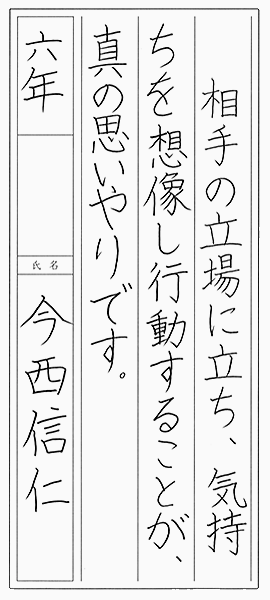 相手の立場に立ち、気持
ちを想像し行動することが、
真の思いやりです。
六年
氏名
今西信仁